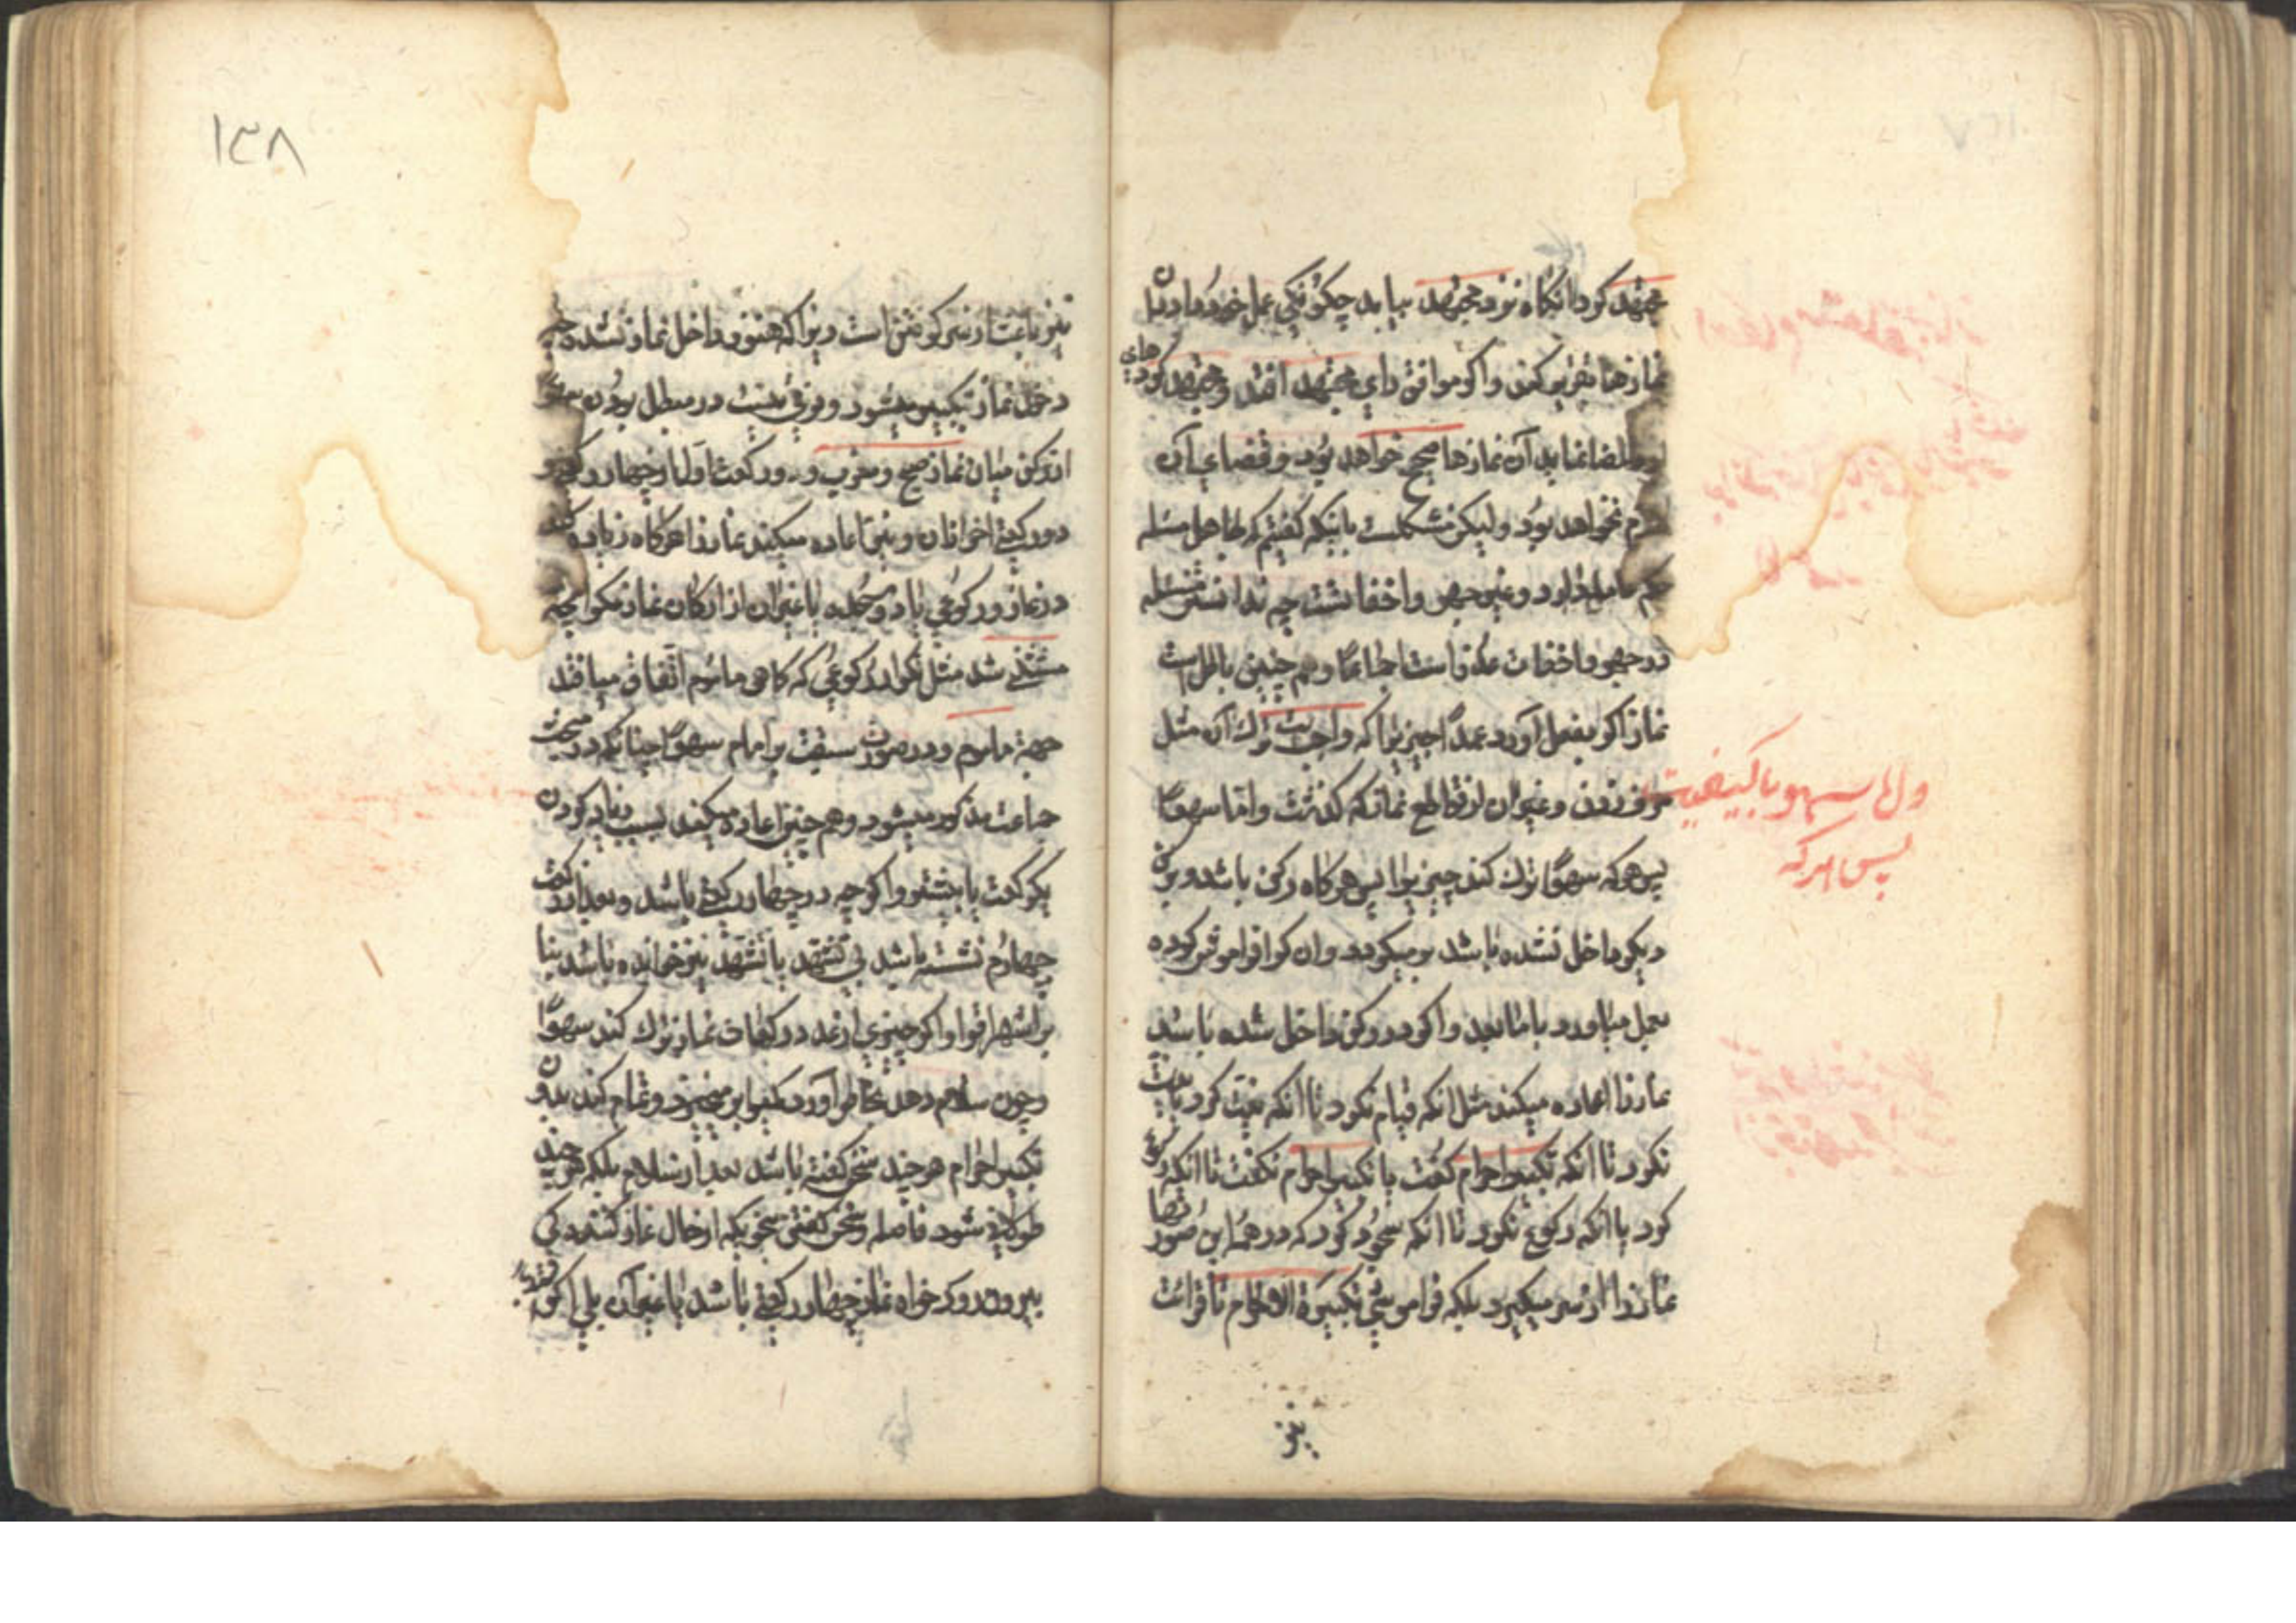 مجتهد کرد انگاه نزد مجتهد بیاید چگونگی عمل خود را در ان
نمازها تقریر کند و اگر موافق رای مجتهد افتد و مجتهد کردهای
او را امضا نماید آن نمازها صحیح خواهد بود و قضای آن
لازم نخواهد بود ولیکن مشکلست بانکه گفتیم که جاهل مسئله
حکم عامد دارد در غیر جهر و اخفاتست چه ندانستن مسئله
در جهر و اخفات عذر است اجماعا و هم چنین باطل است
نماز اگر بفعل آورد عمدا چیزیرا که واجبست ترك آن مثل
حرف زدن و غیر ان از قواطع نماز که گذشت و اما سهوا
پس هر که سهوا ترك کند چیزیرا پس هرگاه رکن باشد و برکن
دیگر داخل نشده باشد بر میگردد و ان را فراموش کرده
بعمل میاورد با مابعد و اگر در رکن داخل شده باشد
نماز را اعاده میکند مثل انکه قیام نکرد تا انکه نیت کرد یا نیت
نکرد تا انکه تکبیر احرام گفت یا تکبیر احرام نگفت تا انکه رکوع
کرد یا انکه رکوع نکرد تا انکه سجود کرد که در همه این صورتها
نماز را از سر میگیرد بلکه فراموشی تکبیرة الاحرام تا قرائت
نیز
و اما سهو با کیفیت
پس هر که
۱۳۸
نیز باعث از سر گرفتن است زیرا که هنوز داخل نماز نشده چه
دخول نماز بتکبیر میشود و فرقی نیست در مبطل بودن سهو
از رکن میان نماز صبح و مغرب و دو رکعت اول از چهار رکعتی و
دو رکعت اخر از ان و نیز اعاده میکند نماز را هرگاه زیاده کند
در نماز رکوعی یا دو سجده یا غیر ان از ارکان نماز مگر انچه
مستثنی شد مثل تکرار رکوعی که گاهی ماموم اتفاق میافتد
جهة ماموم و در صورت سبقت بر امام سهوا چنانکه در مبحث
جماعت مذکور میشود و هم چنین اعاده میکند بسبب زیاد کردن
یکرکعت یا بیشتر و اگرچه در چهار رکعتی باشد و بعد از رکعت
چهارم نشسته باشد بی تشهد یا تشهد نیز خوانده باشد بنا
بر اشهر اقوا و اگر چیزی از عدد رکعات نماز ترك کند سهوا
و چون سلام دهد بخاطر آورد بر میخیزد و تمام کند بدون
تکبیر احرام هر چند سخن گفته باشد بعد از سلام بلکه هر چند
طولانی شود فاصله و سخن گفتن بحدیکه از حال نماز گذاردگی
بیرون رود خواه نماز چهار رکعتی باشد یا غیر آن بلی اگر